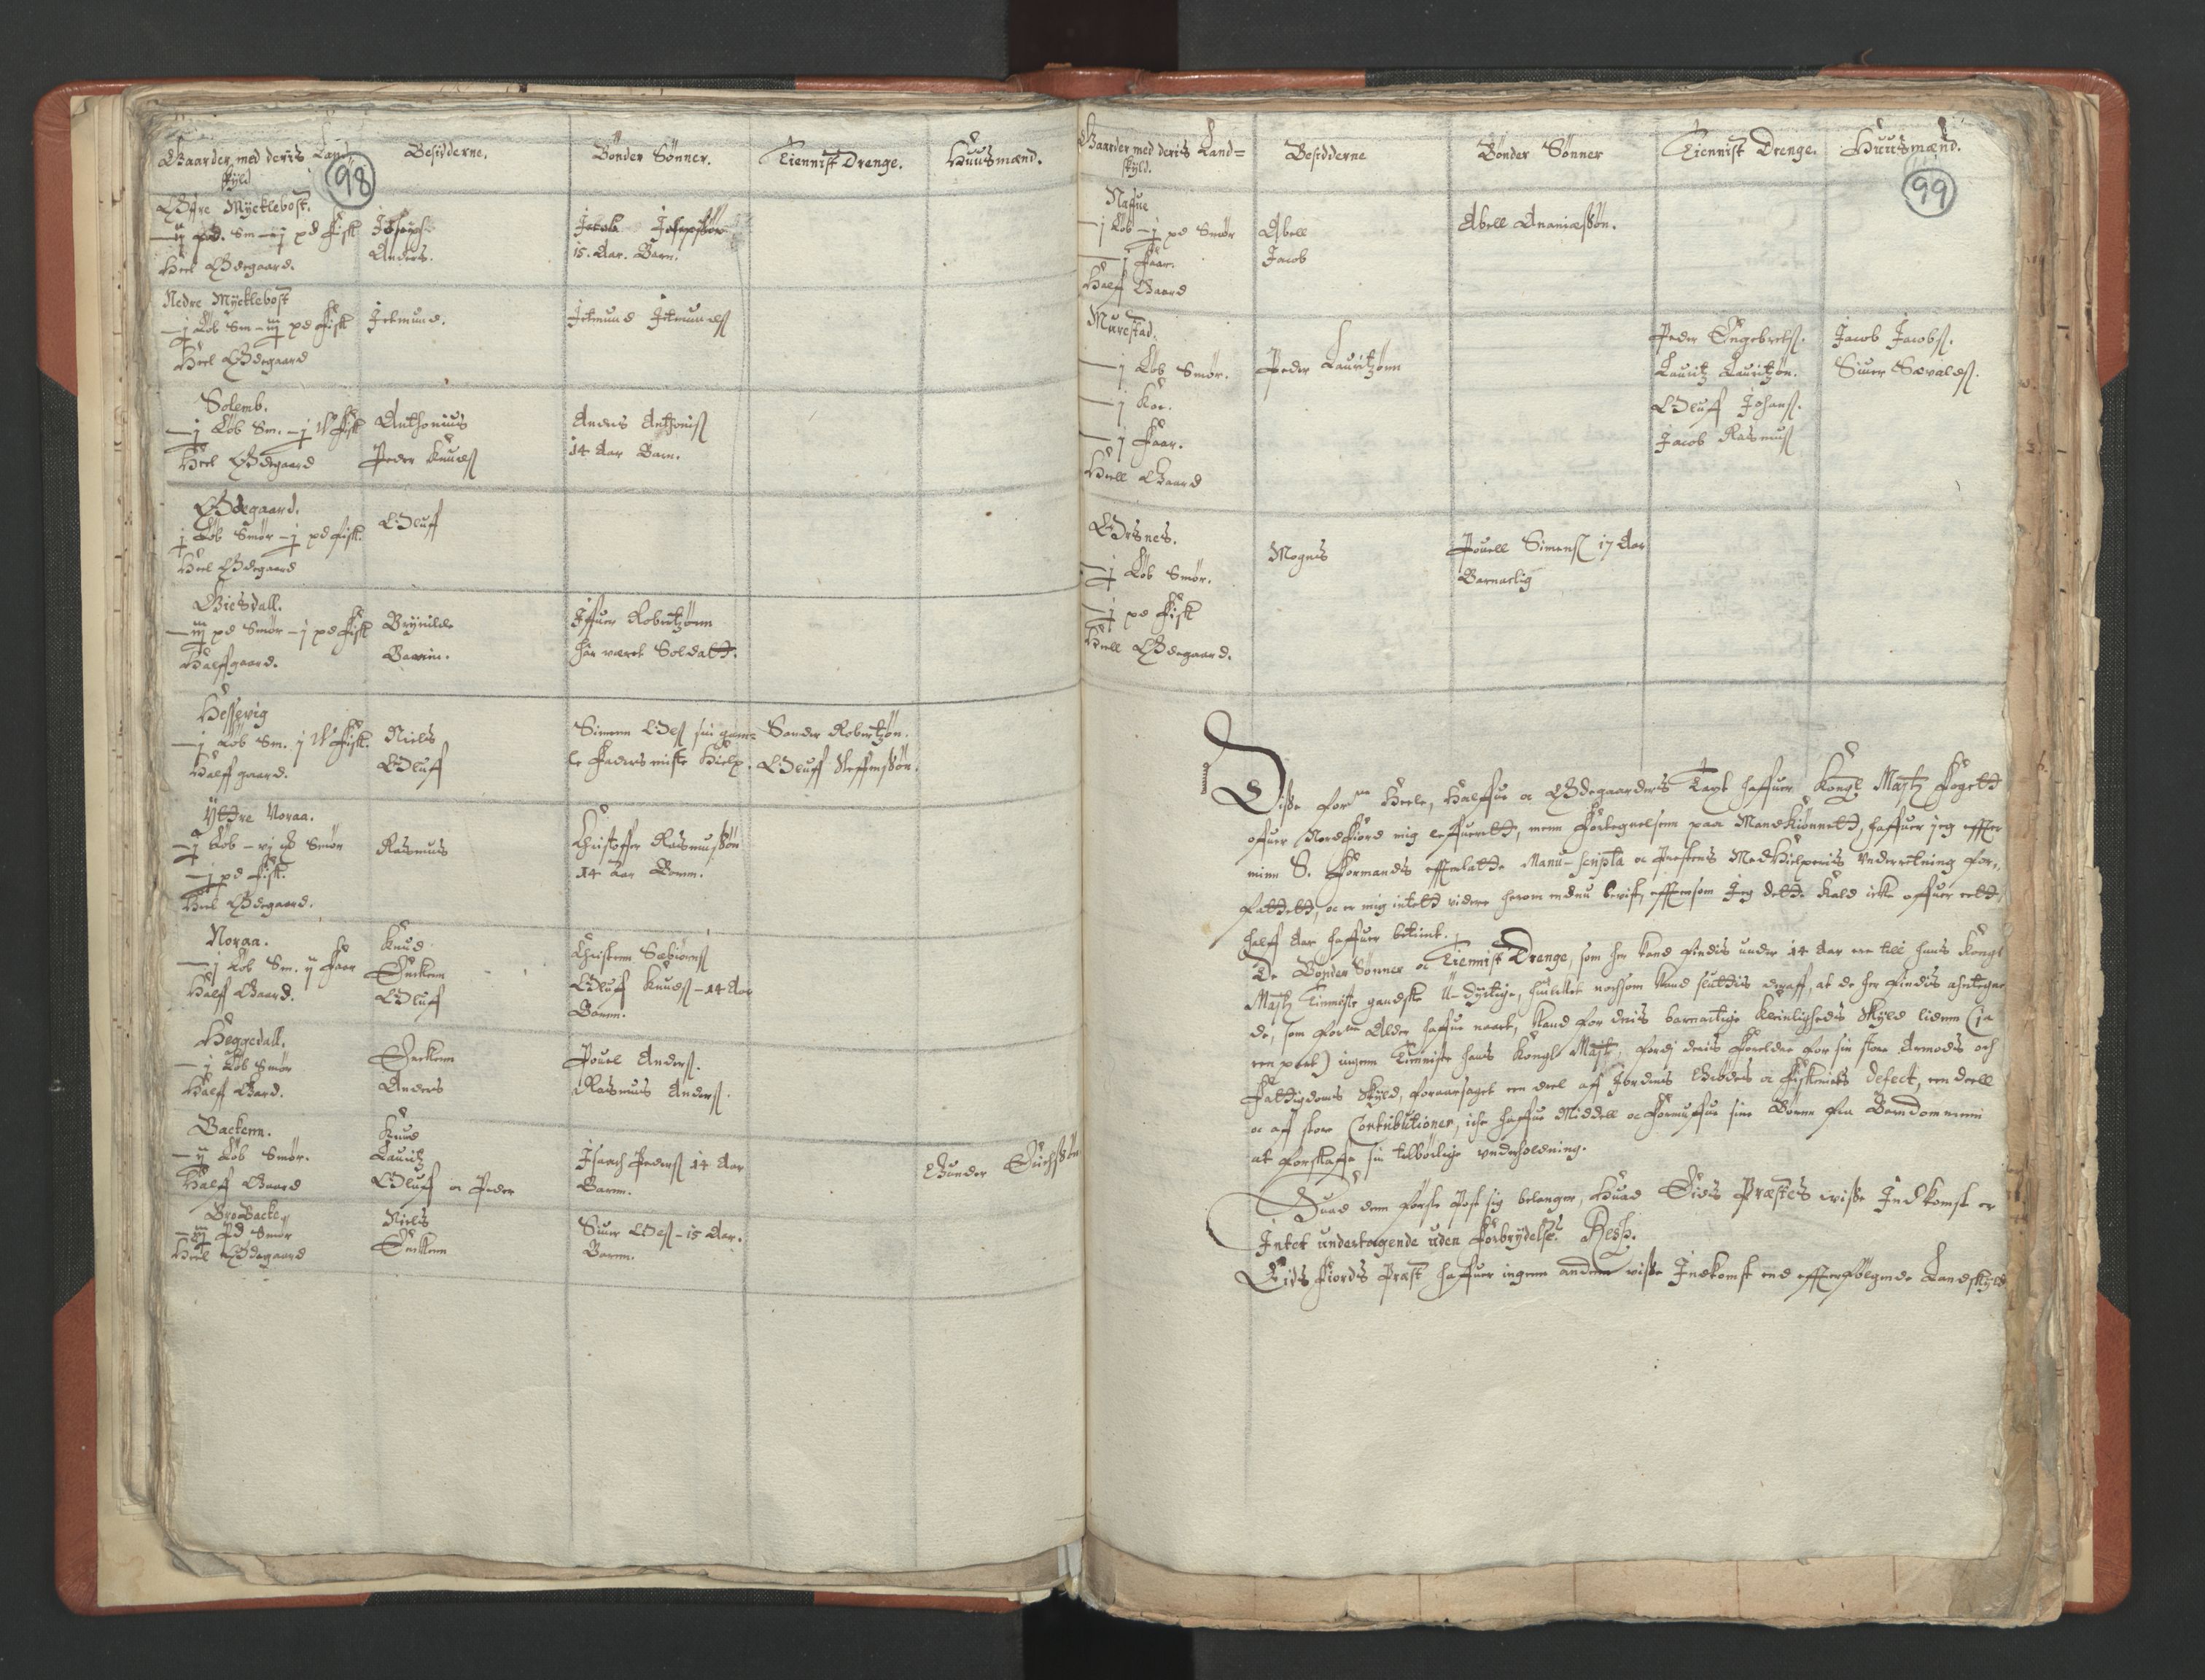 Gaarder med deris Land-
skyld
98
Besidderne.
Bönder Sønner.
Tiennist Drenge.
Huusmænd.
Øffre Mycklebost.
Heel Ødegaard.
Joseph.
Anders.
Jacob Josepssøn
15. Aar. Barn.
Nedre Mycklebost
j Løb Sm – iij pd Fisk
Heel Ødegaard
Jetmund.
Jetmund Jetmundß
Solemb.
j Løb Sm. – j W Fisk
Heel Ødegaard
Anthonius
Peder Knudß
Anders Anthoniß
14 Aar Barn.
Ødegaard.
j Løb Smør – j pd Fisk.
Heel Ødegaard
Oluff
Giesdall.
iij pd Smør – j pd Fisk
Halffgaard.
Brynilde
Iffuer Robertzønn
har været Soldatt.
Hessevig
j Løb Sm. j W Fisk.
Halff gaard.
Niels
Oluff
Simenn Olß sin gam-
le Faders miste Hielp.
Sander Robertzøn.
Oluff Steffenssøn.
Yttre Noraa.
j Løb – vj Smør
j pd Fisk.
Heel Ødegaard.
Rasmus
Christoffer Rasmussøn
14 Aar Barnn.
Noraa.
j Løb Sm. ij Faar
Halff Gaard.
Knud
Enckenn
Oluff
Christenn Sæbiørnß
Oluff Knudß – 14 Aar
Barnn.
Heggedall.
j Løb Smør
Halff Gaard.
Enckenn
Anders
Pouel Andersß.
Rasmus Andersß.
Backenn.
ij Løb Smør.
Halff Gaard
Knud
Lauritz
Oluff oc Peder
Isaach Pedersß 14 Aar
Barnn.
Gunder Erichssøn
BroBacke
iij Pd Smør
Heel Ødegaard
Niels
Enckenn
Siuer Olß – 15 Aar.
Barnn.
Gaarder med deris Land-
skyld.
Besidderne
Bönder Sønner
Tiennist Drenge.
Huusmænd.
99
Naffue
j Løb – j pd Smør
j Faar.
Halff Gaard
Abell
Jacob
Abell Ananiæssøn.
Murestad.
j Løb Smør.
j Koe.
j Faar.
Heell Gaard
Peder Lauritzønn
Peder Engebretß.
Lauritz Lauritzøn.
Oluff Johanß.
Jacob Rasmusß
Jacob Jacobß.
Siuer Sæualdß.
Orsnes.
j Løb Smør.
j pd Fisk
Heell Ødegaard.
Mogns
Pouell Simensß 17 Aar
Barnactig
Disse forne Heele, Halffue oc Ødegaarders Taxt haffuer Kongl Maytz Fogett
offuer Nordfiord mig leffueritt, menn Fortegnelsenn paa Mandkiønnett, haffuer jeg effter
minn S. Formands effterlatte Manu-scripta oc Prestens MedHielperis Vnderretning for-
fattett, oc er mig intett videre herom endnu bevist, efftersom Jeg dette Kald icke offuer eett
halff Aar haffuer betient.
De Bönder Sønner oc Tiennist Drenge, som her kand findis under 14 Aar ere till hans Kongl
Maytz Tienniste gandske U-dyctige, huilcket nochsom kand sluttis deraff, at de her findis
de, som forne Alder haffue naaet, kand for deris barnactige kleinligheds Skyld lidenn (ja
ingenn Tienniste hans Kongl Maytt, fordj deris Foreldre for sin store Armods och
Fattigdoms Skyld, foraarsaget een deel aff Jordens Grødes oc Fiskeriets defect, een deell
oc aff store Contributioner, icke haffue Middell oc Formuffue sine Børnn fra Barndommenn
at forskaffe sin tilbørlige vnderholdning.
Huad denn første Post sig belanger, Huad Eids Præstes wisse Indkomst er
Intet undertagende uden Forbrydelse. Resp.
Eids Fiords Præst haffuer ingenn andenn wisse Indkomst end effterfølgende Landskyld